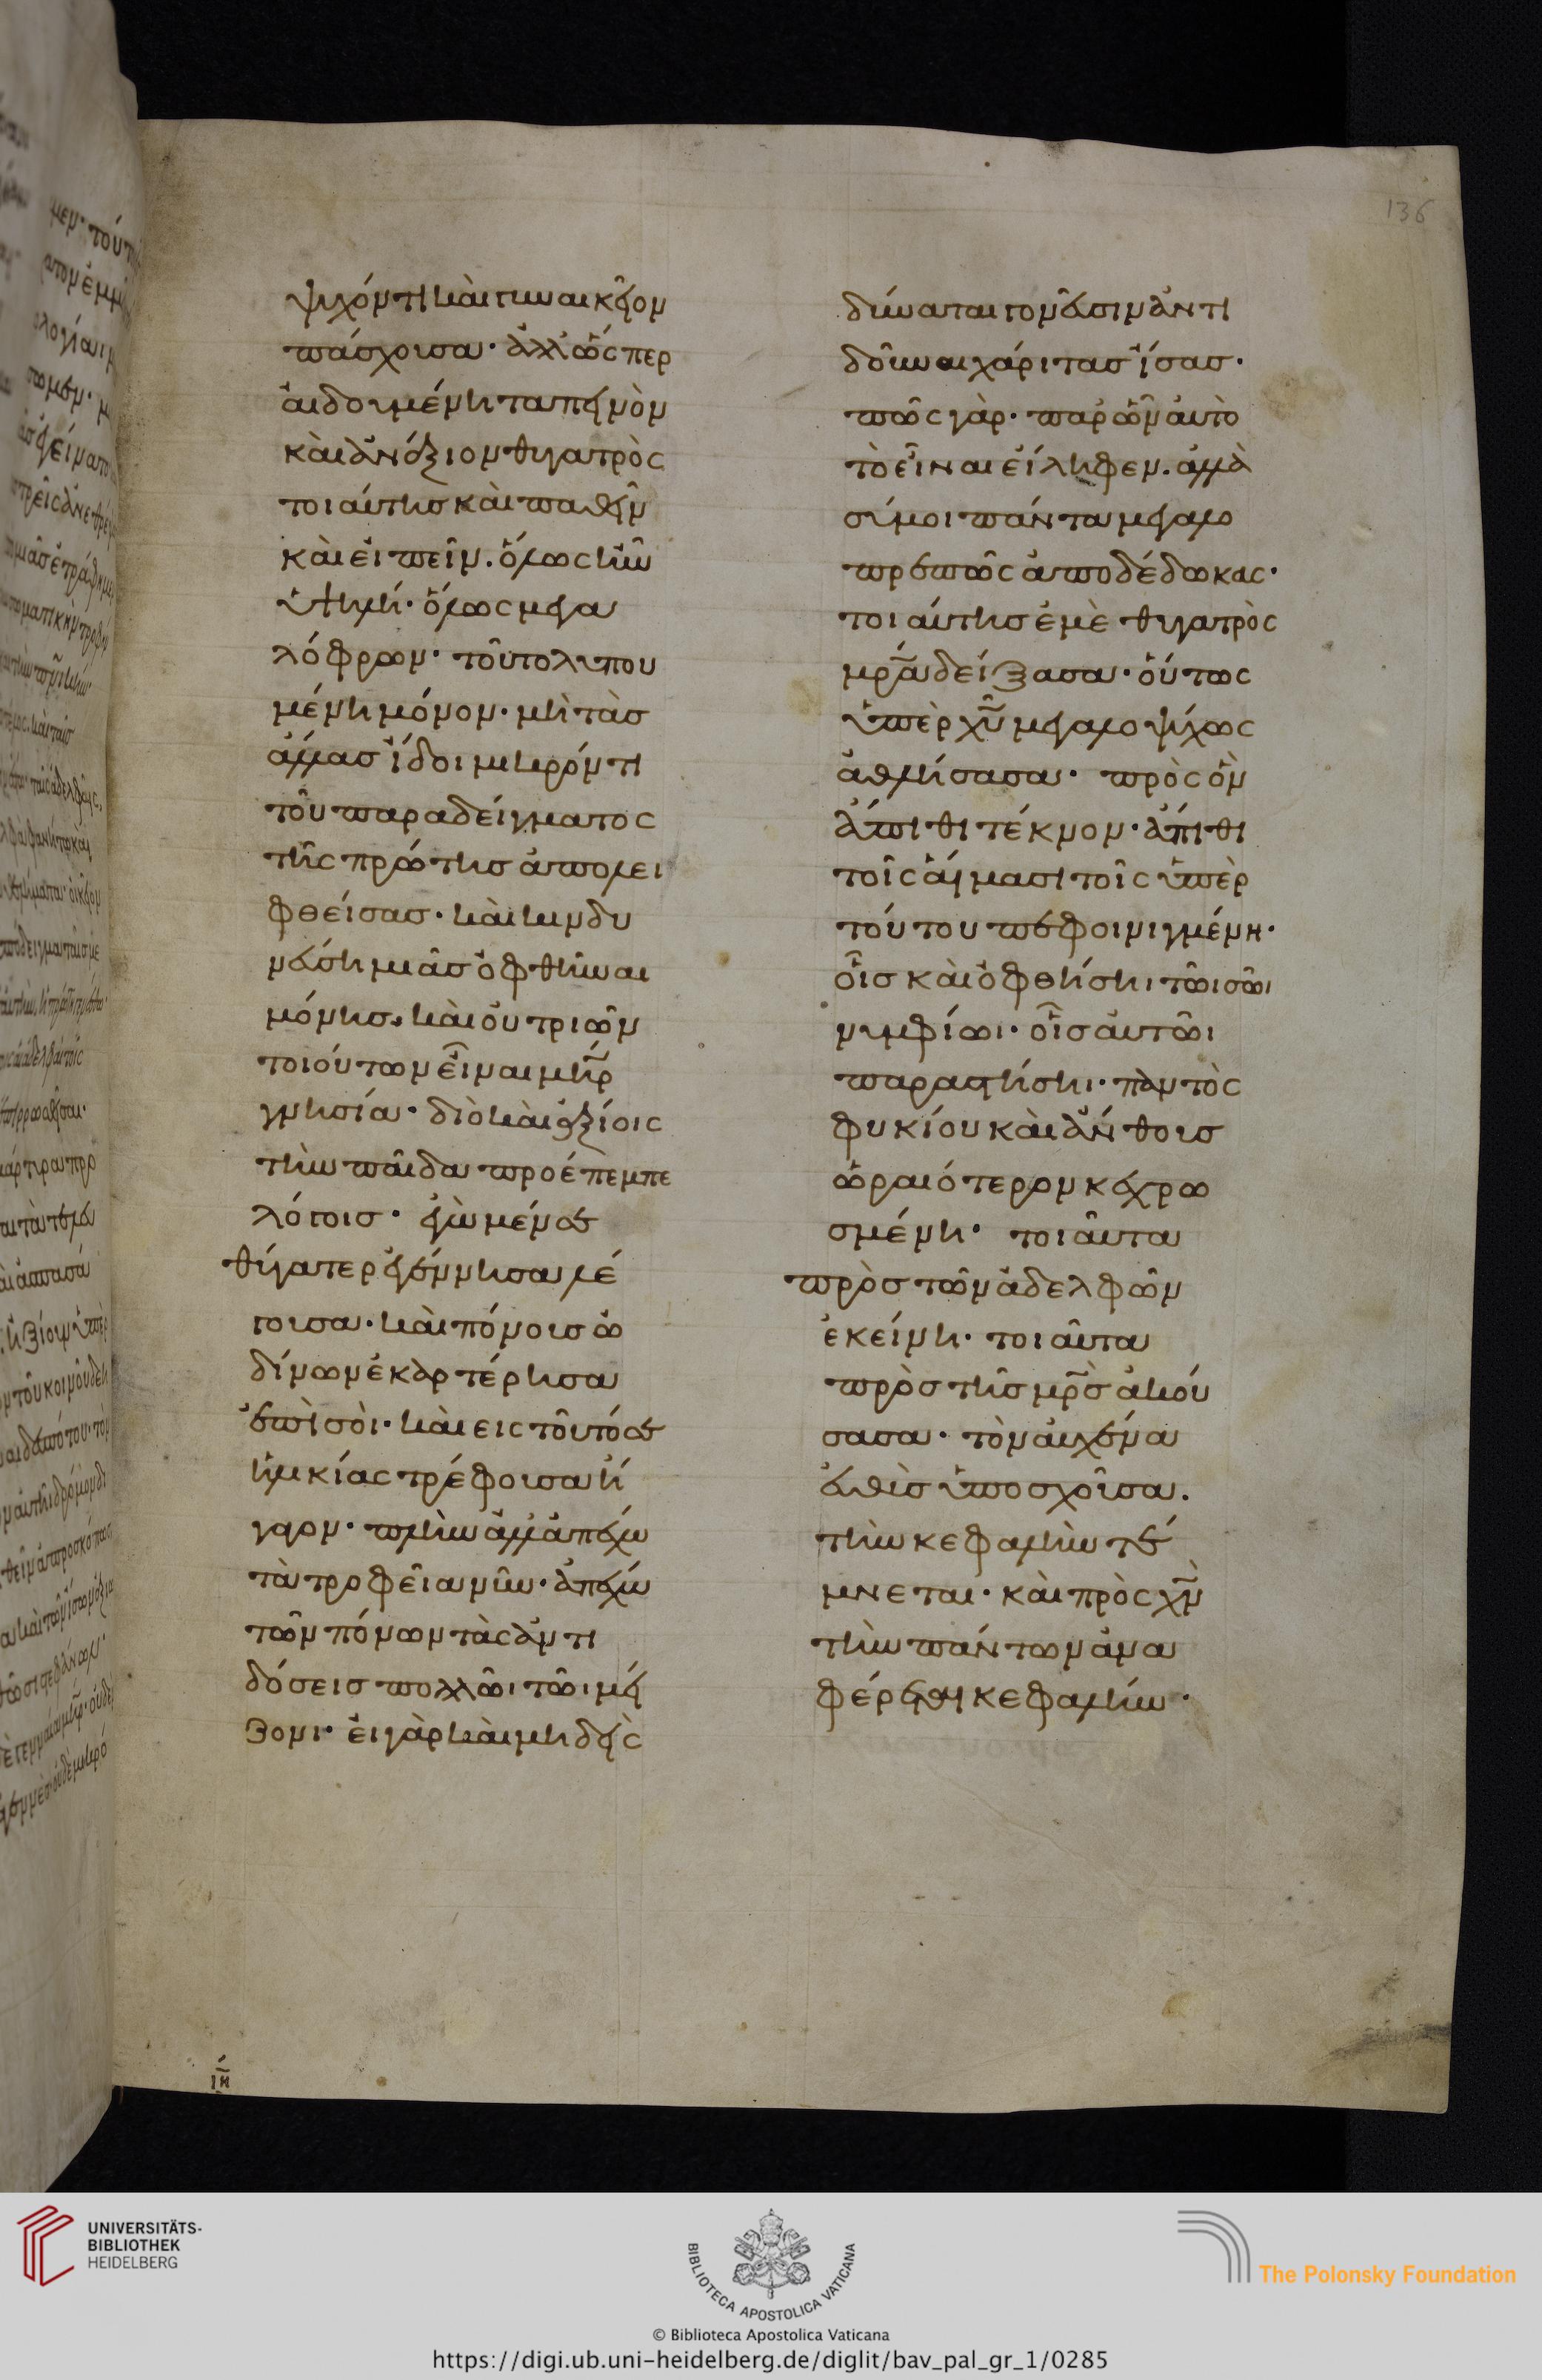 136
ψυχόν τι καὶ γυναικεῖον
πάσχουσα· ἀλλ' ὥσπερ
αἰδουμένη ταπεινὸν
καὶ ἀνάξιον θυγατρὸς
τοιαύτης καὶ παθεῖν
καὶ εἰπεῖν. ὅλως ἦν
ὑψηλή· ὅλως μεγα
λόφρων· τοῦτο λυπου
μένη μόνον· μὴ τὰς
ἄλλας ἴδοι μικρόν τι
τοῦ παραδείγματος
τῆς πρώτης ἀπολει
φθείσας· καὶ κινδυ
νεύση μιᾶς ὀφθῆναι
μόνης. καὶ οὐ τριῶν
τοιούτων εἶναι μη̅ρ
γνησία· διὸ καὶ ἀξίοις
τὴν παῖδα προέπεμπε
λόγοις· ἐγὼ μέν σε
θύγατερ ἐγέννησα λέ
γουσα· καὶ πόνοις ὠ
δίνων ἐκαρτέρησα
ἐπὶ σοὶ· καὶ εἰς τοῦτό σε
ἡλικίας τρέφουσα ἤ
γαγον· πλὴν ἀλλ' ἀπέχω
τὰ τροφεῖα νῦν· ἀπέχω
τῶν πόνων τὰς ἀντι
δόσεις πολλῶι τῶι μεί
ζονι· εἰ γὰρ καὶ μηδεὶς
δύναται γονεῦσιν ἀντι
δοῦναι χάριτας ἴσας·
πῶς γὰρ· παρ' ὧν αὐτὸ
τὸ εἶναι εἴληφεν. ἀλλὰ
σύ μοι πάντα μεγαλο
πρεπῶς ἀποδέδωκας·
τοιαύτης ἐμὲ θυγατρὸς
μρ̅α δείξασα· οὕτως
ὑπὲρ χυ̅ μεγαλοψύχως
ἀθλήσασα· πρὸς ὃν
ἄπιθι τέκνον· ἄπιθι
τοῖς αἵμασι τοῖς ὑπὲρ
τούτου πεφοινιγμένη·
οἷς καὶ ὀφθήσηι τῶι σῶι
νυμφίωι· οἷς αὐτῶι
παραστήσηι· παντὸς
φυκίου καὶ ἄνθους
ὡραιότερον κεχρω
σμένη· τοιαῦτα
πρὸς τῶν ἀδελφῶν
ἐκείνη· τοιαῦτα
πρὸς τῆς μρ̅ς ἀκού
σασα· τὸν αὐχένα
εὐθὺς ὑποσχοῦσα.
τὴν κεφαλὴν τέ
μνεται· καὶ πρὸς χν̅
τὴν πάντων ἀνα
φέρεται κεφαλήν·
ιη
UNIVERSITÄTS-
BIBLIOTHEK
HEIDELBERG
BIBLIOTECA APOSTOLICA VATICANA
The Polonsky Foundation
© Biblioteca Apostolica Vaticana
https://digi.ub.uni-heidelberg.de/diglit/bav_pal_gr_1/0285